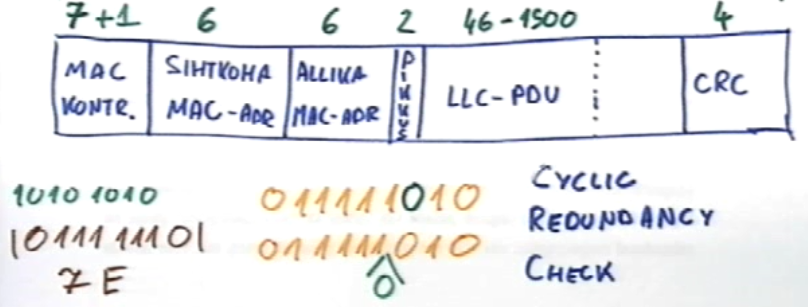 7+1 6 6 2 46-1500 4
MAC KONTR.
SIHTKOHA MAC-ADR
ALLIKA MAC-ADR
PIKKUS
LLC-PDU
CRC
1010 1010
|01111110|
7E
011111010
011111010
0
CYCLIC
REDUNDANCY
CHECK